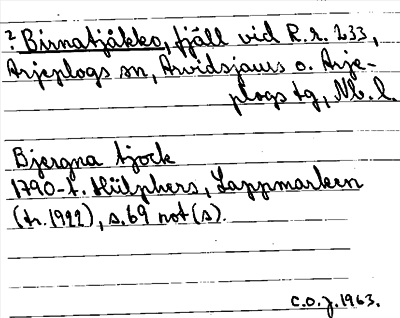 ? Birnatjåkko, fjäll vid R.r. 233,
Arjeplogs sn, Arvidsjaurs o. Arje-
plogs tg, Nb. l.
Bjergna tjock
1790-t. Hülphers, Lappmarken
(tr. 1922), s. 69 not (s).
C.O.J. 1963.